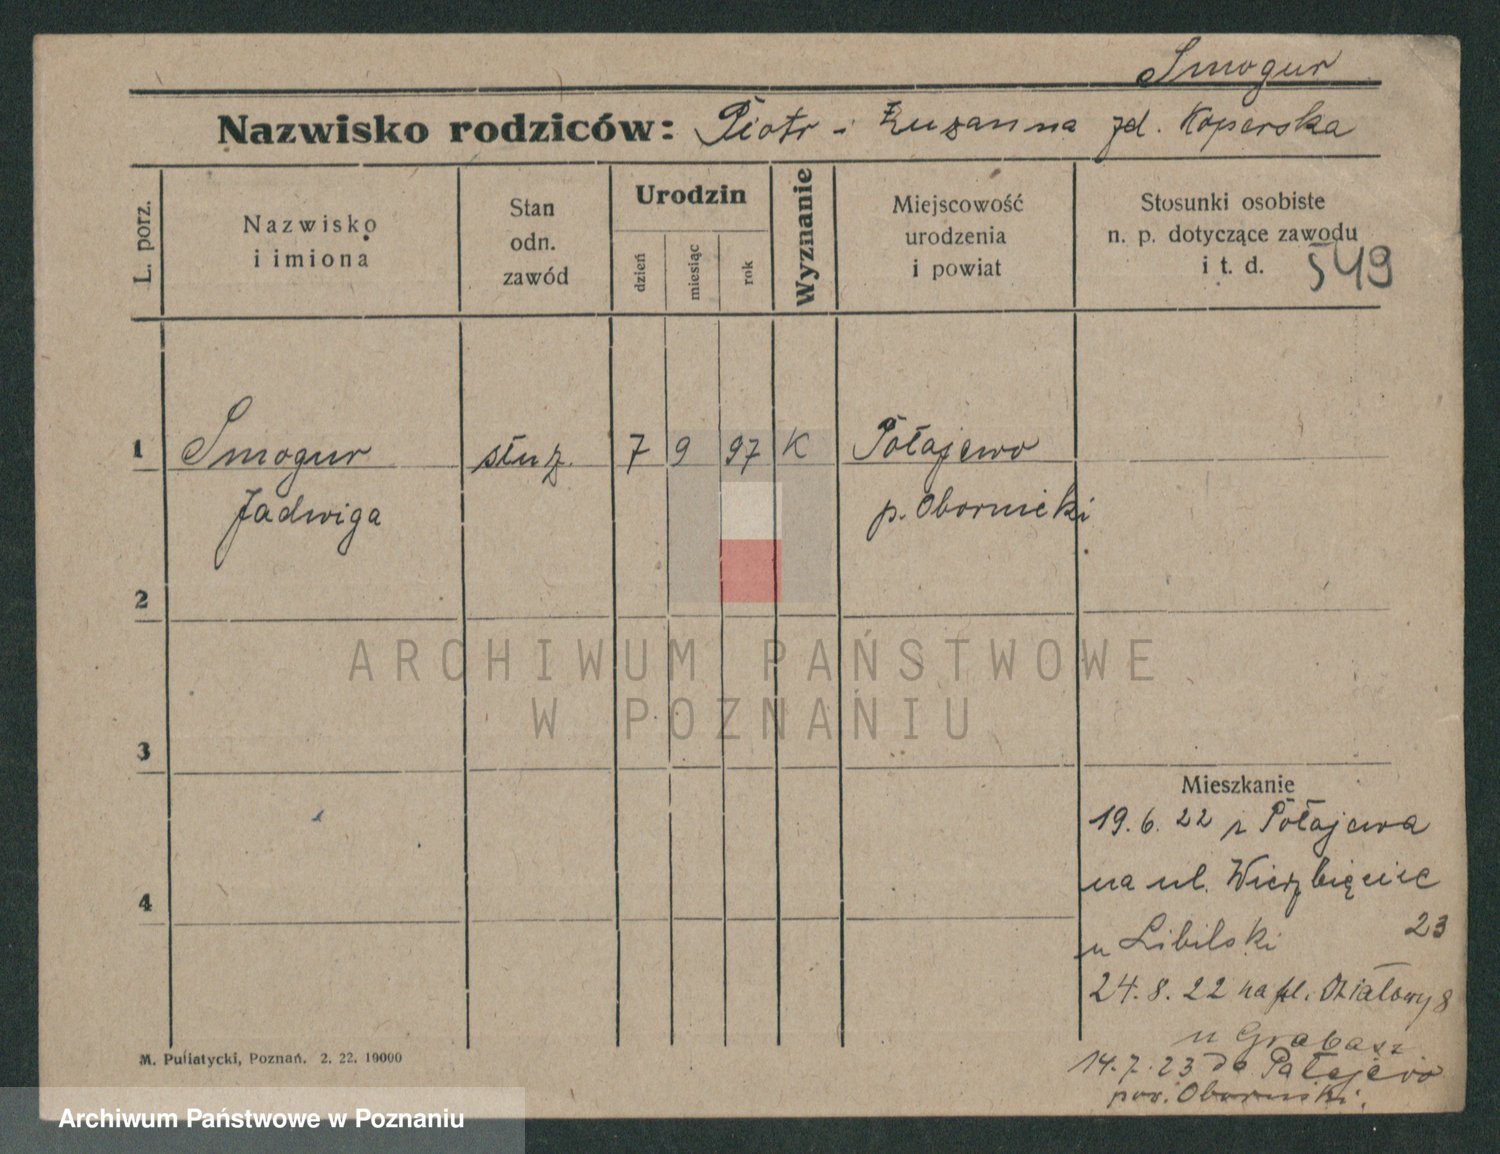 Smogur
Nazwisko rodziców: Piotr i Zuzanna zd. Koperska
L. porz.
Nazwisko
i imiona
Stan
odn.
zawód
Urodzin
dzień
miesiąc
rok
Wyznanie
Miejscowość
urodzenia
i powiat
Stosunki osobiste
n. p. dotyczące zawodu
i t. d.
549
1 Smogur służ. 7 9 97 K Połajewo
Jadwiga p. Obornicki
2
ARCHIWUM PAŃSTWOWE
W POZNANIU
3
Mieszkanie
19.6.22 z Połajewa
na ul. Wierzbięcice
23
u Libilski
4
24.8.22 na pl. Działowy 8
u Grabasz
14.7.23 do Połajewo
pow. Obornicki.
M. Putiatycki, Poznań. 2. 22. 10000
Archiwum Państwowe w Poznaniu